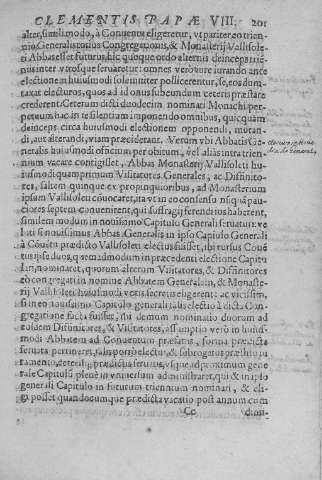 CLEMENTIS PAPÆ VIII. 201
alter, simili modo, à Conuentu eligeretur, vt pariter eo trien-
nio Generalis totius Congregationis, & Monasterij Vallisole-
ti Abbas esset futurus, hic quoque ordo alternis deinceps trié-
nijs inter vtrosque seruaretur: omnes verò ture iurando ante
electionem huiusmodi solemniter pollicerentur, se, eos dum-
taxat electuros, quos ad id onus subeundum ceteris præstare
crederent. Ceterum dicti duodecim nominati Monachi, per-
petuum hac in re silentiam imponendo omnibus, qui cquàm
deinceps circa huiusmodi electionem opponendi, mutandi,
aut alterandi, viam præcidebant. Verùm vbi Abbatis Ge-
neralis huiusmodi officium per obitum, vel aliàs intra trien-
nium vacare contigisset, Abbas Monasterij Vallisoleti huius-
modi quamprimum Visitatores Generales, ac Diffinito-
res, saltem quinque ex propinquioribus, ad Monasterium
ipsum Vallisoleti cóuocaret, ita vt in eo consensu nsquá pau-
ciores septem conuenirent, qui suffragij ferendi ius haberent,
similem modum in nouissimo Capitulo Generali seruatur: ve-
luti si nouissimus Abbas Generalis in ipso Capitulo General,
à Cóuétu prædicto Vallisoleti electus fuisset, ibi rursus Cóué
tus ipse duos, quemadmodum in præcedenti electione Capitu
lari, nominaret, quorum alterum Visitatores, & Diffinitores
eò congregati in nomine Abbatem Generalem, & Monaste-
rij Vallisoleti huiusmodi votis secretis eligerent: ac vicissim,
si in eo nouissimo Capitulo generali talis electio à dicta Con-
gregatione facta fuisset, ibi demum nominatio duorum ad
eosdem Diffinitores, & Visitatores, assumptio verò in huius-
modi Abbatem ad Conuentum præfatum, forma prædicta
seruata pertineret,
tamento, ceterisque prædictis seruatis, vsque ad proximum gene
rale Capitulũ plenè in vniuersum administraret, qui & in ipso
generali Capitulo in futurum triennium nominari, & eli-
gi posset quandocumque prædicta vacatio post annum cum
Cc dimi-